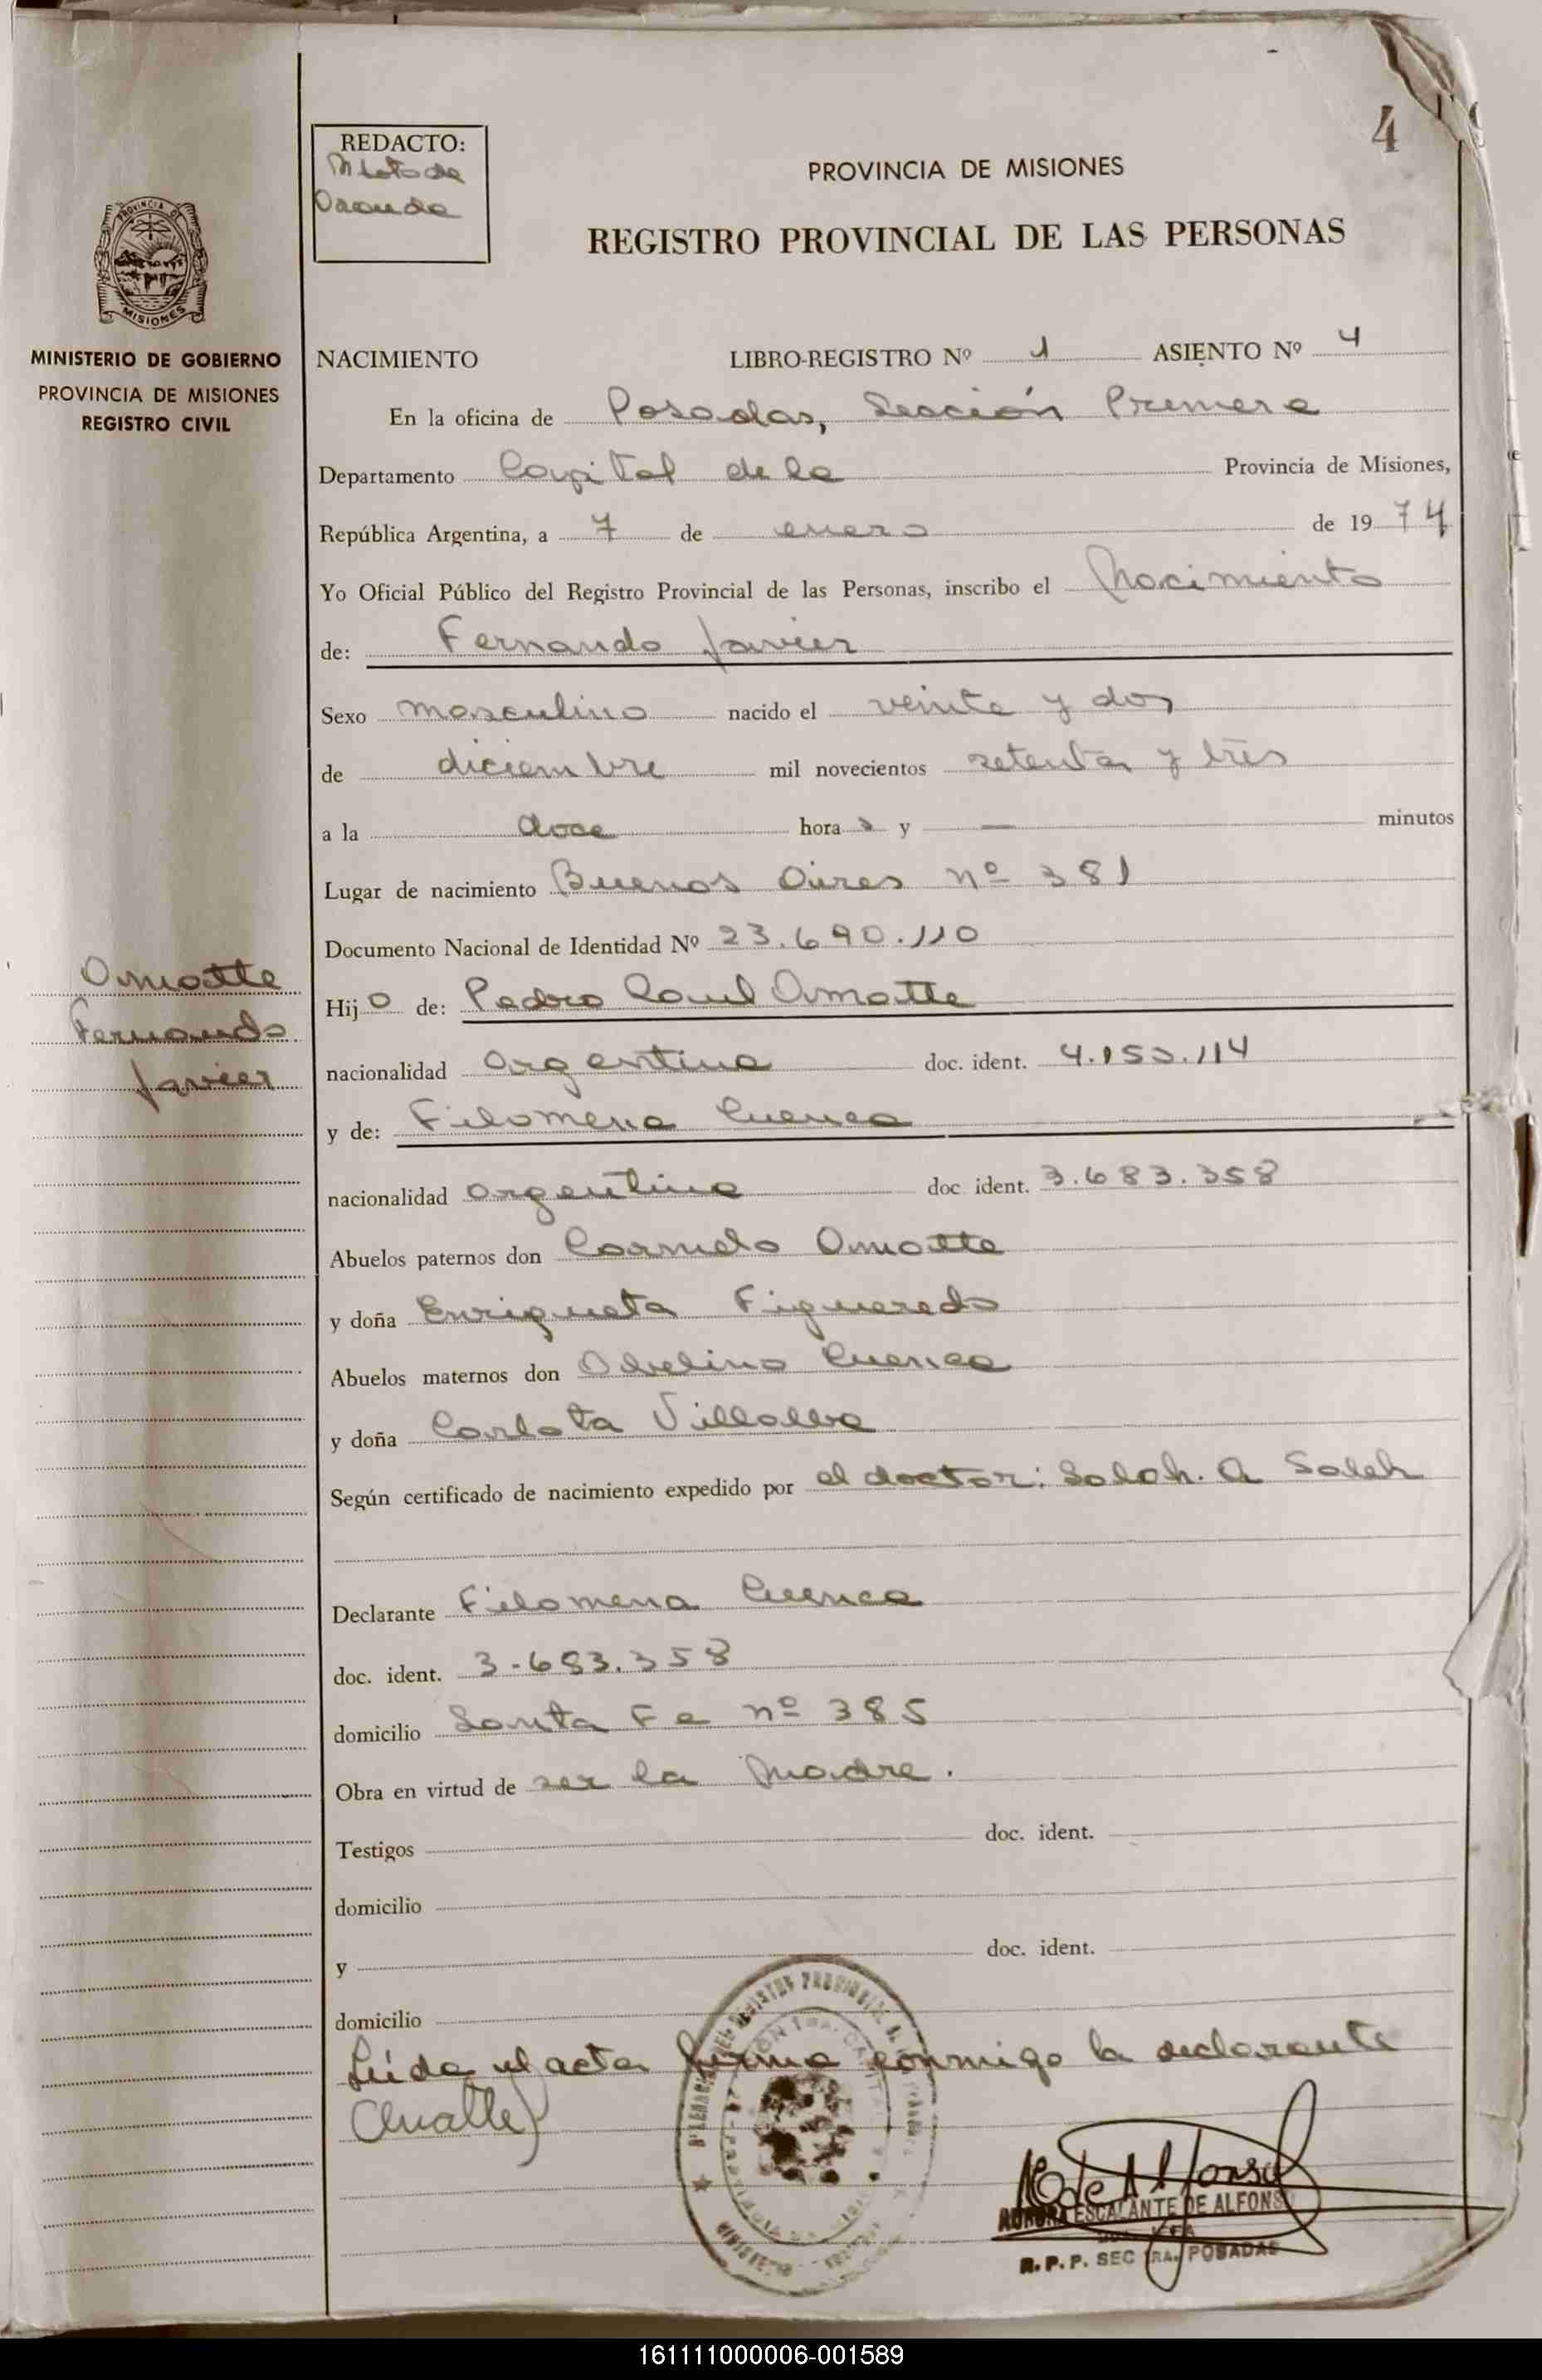 4
REDACTO:
PROVINCIA DE MISIONES
REGISTRO PROVINCIAL DE LAS PERSONAS
PROVINCIA DE
MISIONES
MINISTERIO DE GOBIERNO
PROVINCIA DE MISIONES
REGISTRO CIVIL
NACIMIENTO LIBRO-REGISTRO Nº 1 ASIENTO Nº 4
En la oficina de Posadas, Sección Primera
Departamento Capital de la Provincia de Misiones,
República Argentina, a 7 de enero de 1974
Yo Oficial Público del Registro Provincial de las Personas, inscribo el Nacimiento
de: Fernando Javier
Sexo masculino nacido el veinte y dos
de diciembre mil novecientos setenta y tres
a la doce horas y — minutos
Lugar de nacimiento Buenos Aires nº 381
Documento Nacional de Identidad Nº 23.690.110
Amatte
Fernando
Javier
Hijo de: Pedro Raul Amatte
nacionalidad Argentina doc. ident. 4.153.114
y de: Filomena Cuenca
nacionalidad argentina doc. ident. 3.683.358
Abuelos paternos don Carmelo Amatte
y doña Enriqueta Figueredo
Abuelos maternos don Abelino Cuenca
y doña Carlota Villalba
Según certificado de nacimiento expedido por el doctor: Salah. A Saleh
Declarante Filomena Cuenca
doc. ident. 3.683.358
domicilio Santa Fe nº 385
Obra en virtud de ser la Madre.
Testigos doc. ident.
domicilio
y doc. ident.
domicilio
Leída el acta firma conmigo la declarante
AURORA ESCALANTE DE ALFONSO
R.P.P. SEC 1RA. POSADAS
161111000006-001589